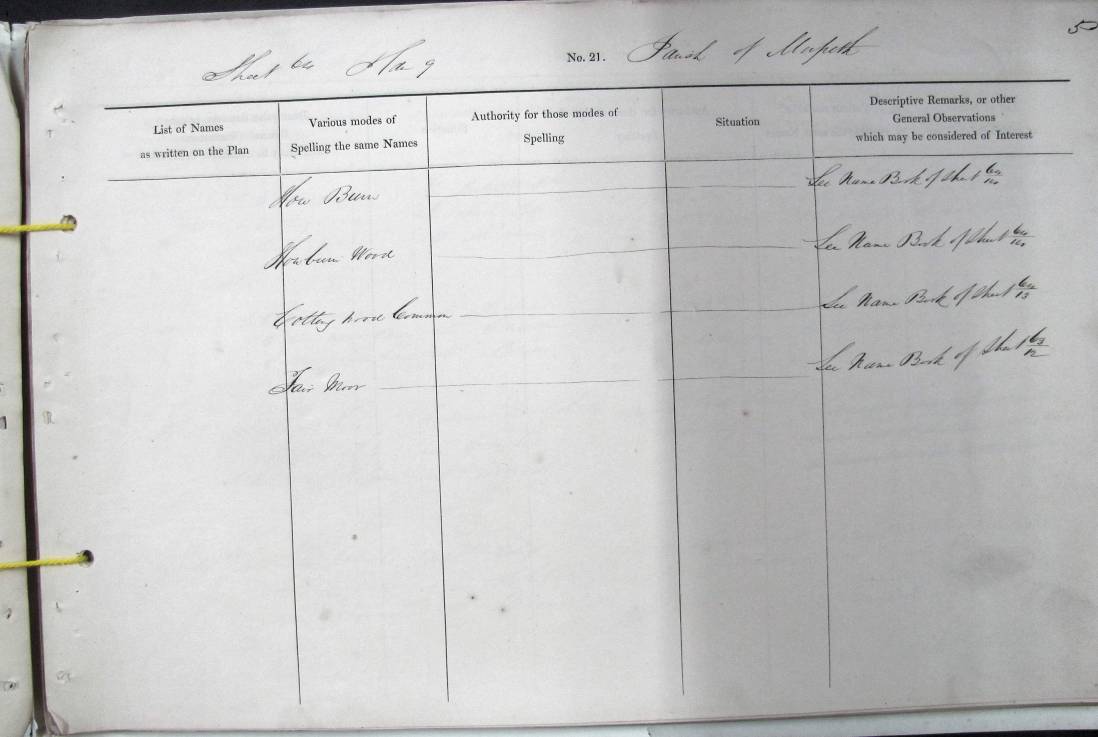 5
Sheet 64 Plan 9 No. 21. Parish of Morpeth
List of Names
as written on the Plan
Various modes of
Spelling the same Names
Authority for those modes of
Spelling
Situation
Descriptive Remarks, or other
General Observations
which may be considered of Interest
How Burn See Name Book of Sheet 64/10
Howburn Wood See Name Book of Sheet 64/10
Cottingwood Common See Name Book of Sheet 64/13
Fair Moor See Name Book of Sheet